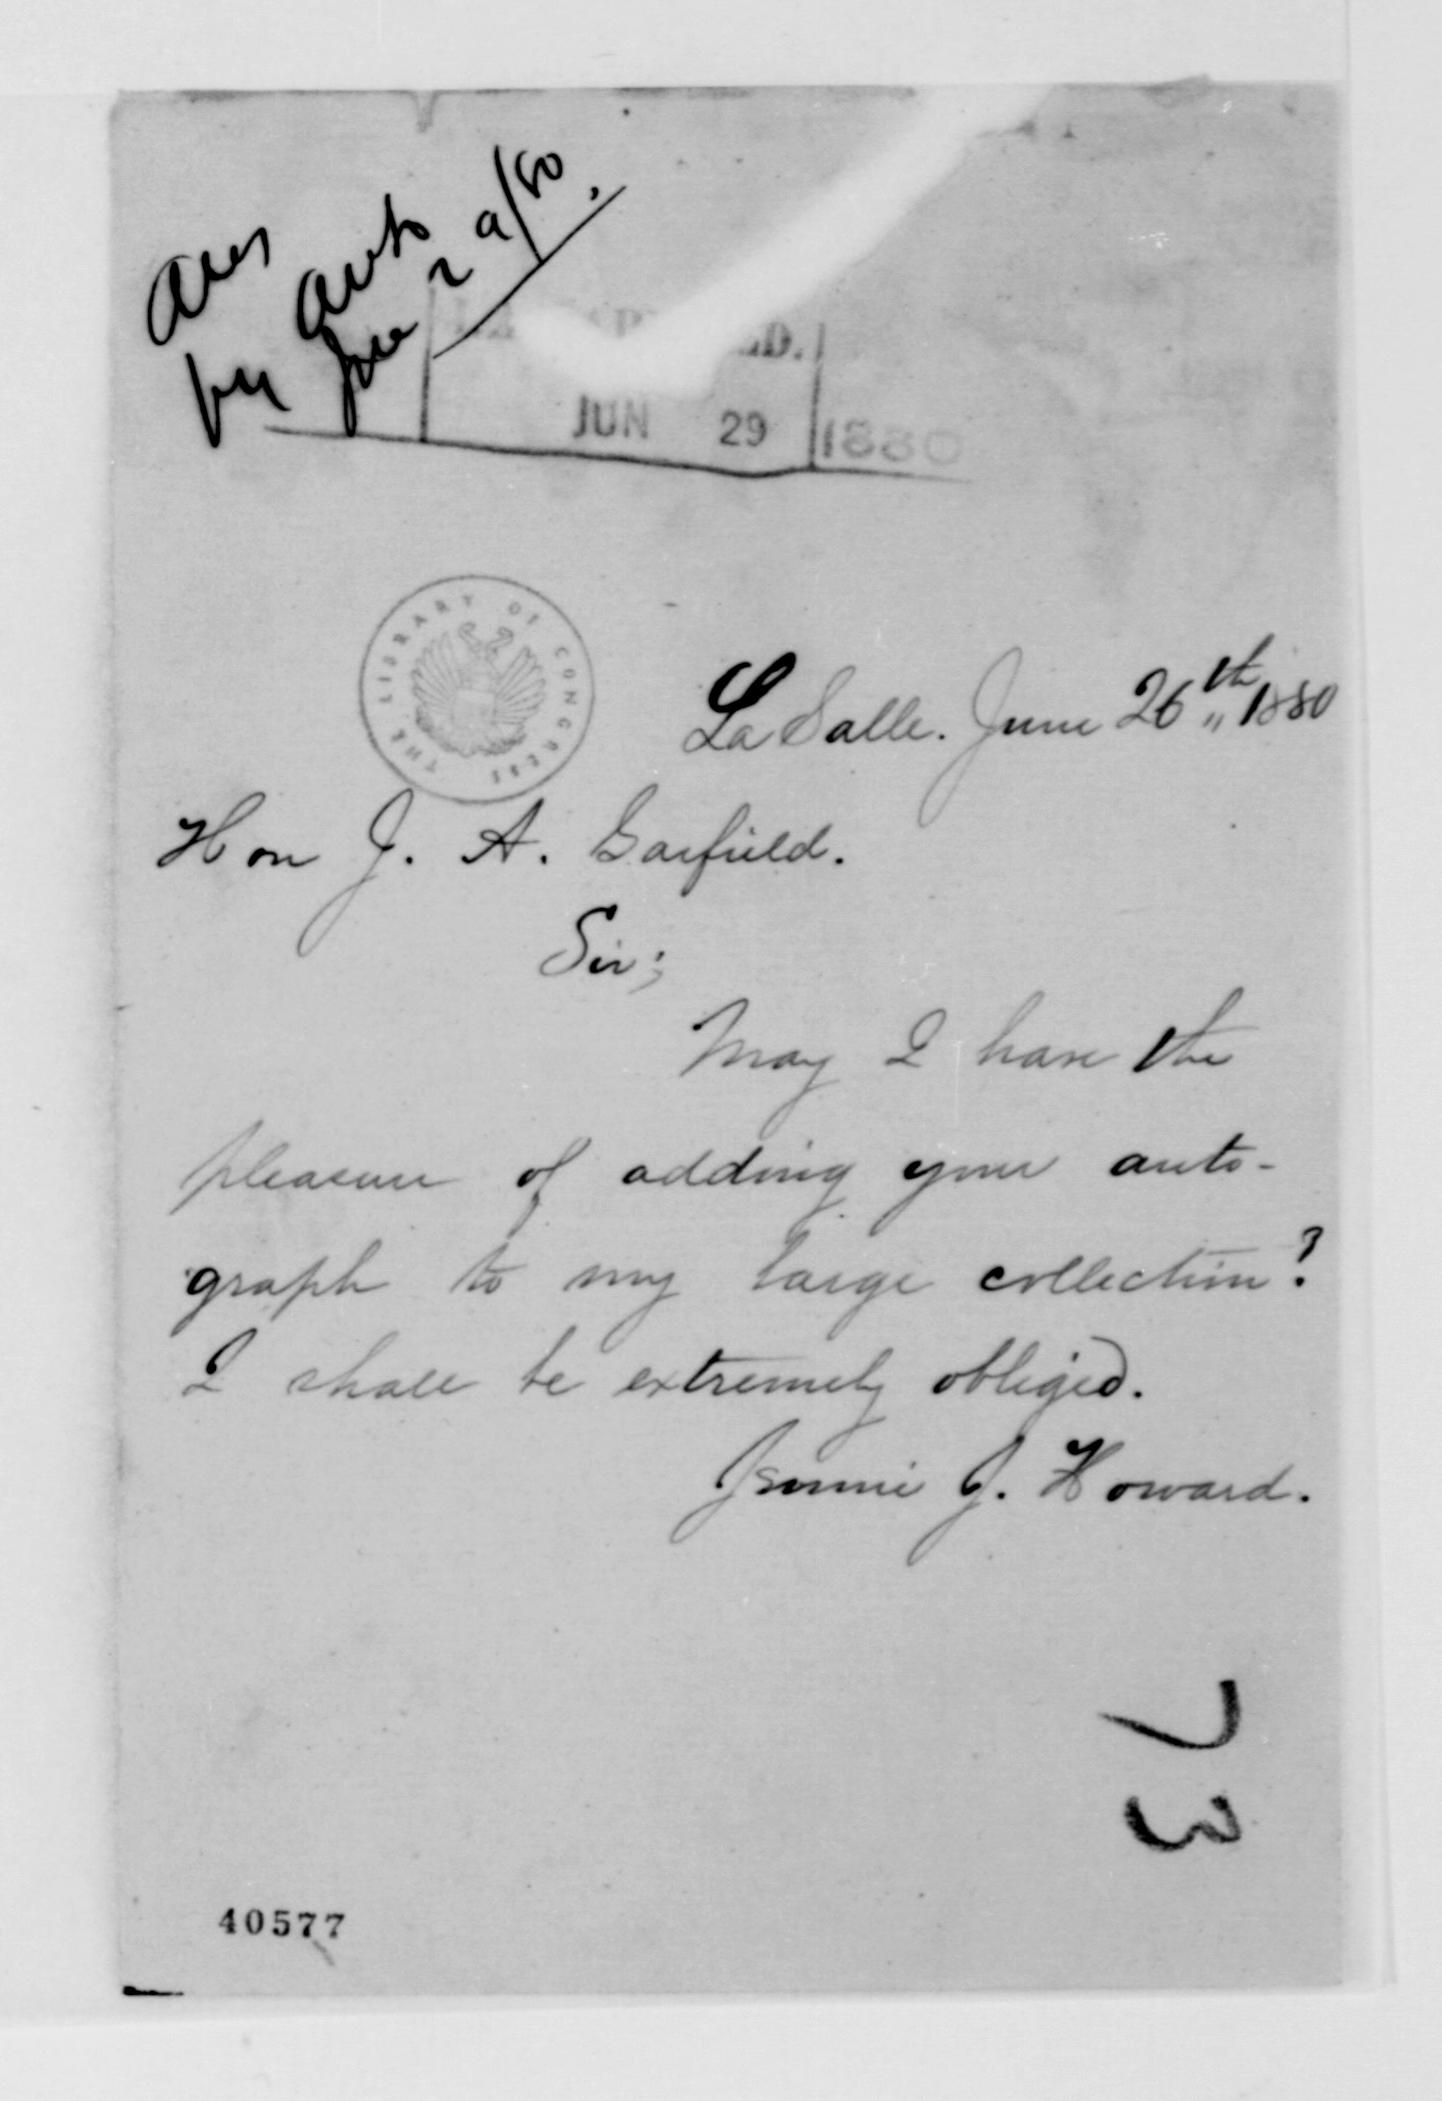 Ans Auto
by Jne 29/80.
ED.
JUN 29 1880
THE LIBRARY OF CONGRESS
La Salle. June 26th 1880
Hon J. A. Garfield.
Sir;
May I have the
pleasure of adding your auto-
graph to my large collection?
I shall be extremely obliged.
J. Howard.
73
40577